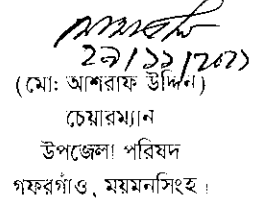 ২৯/১১/২০২১
(মো: আশরাফ উদ্দিন)
চেয়ারম্যান
উপজেলা পরিষদ
গফরগাঁও, ময়মনসিংহ।